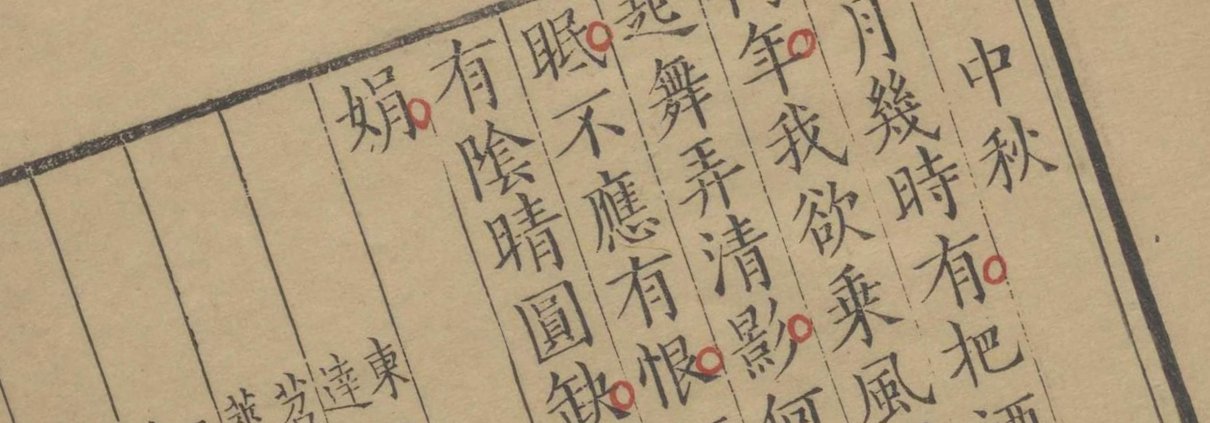 中秋
月幾時有把酒
年我欲乗風
起舞弄清影何
眠不應有恨
有陰晴圓缺
娟
東
達
茗